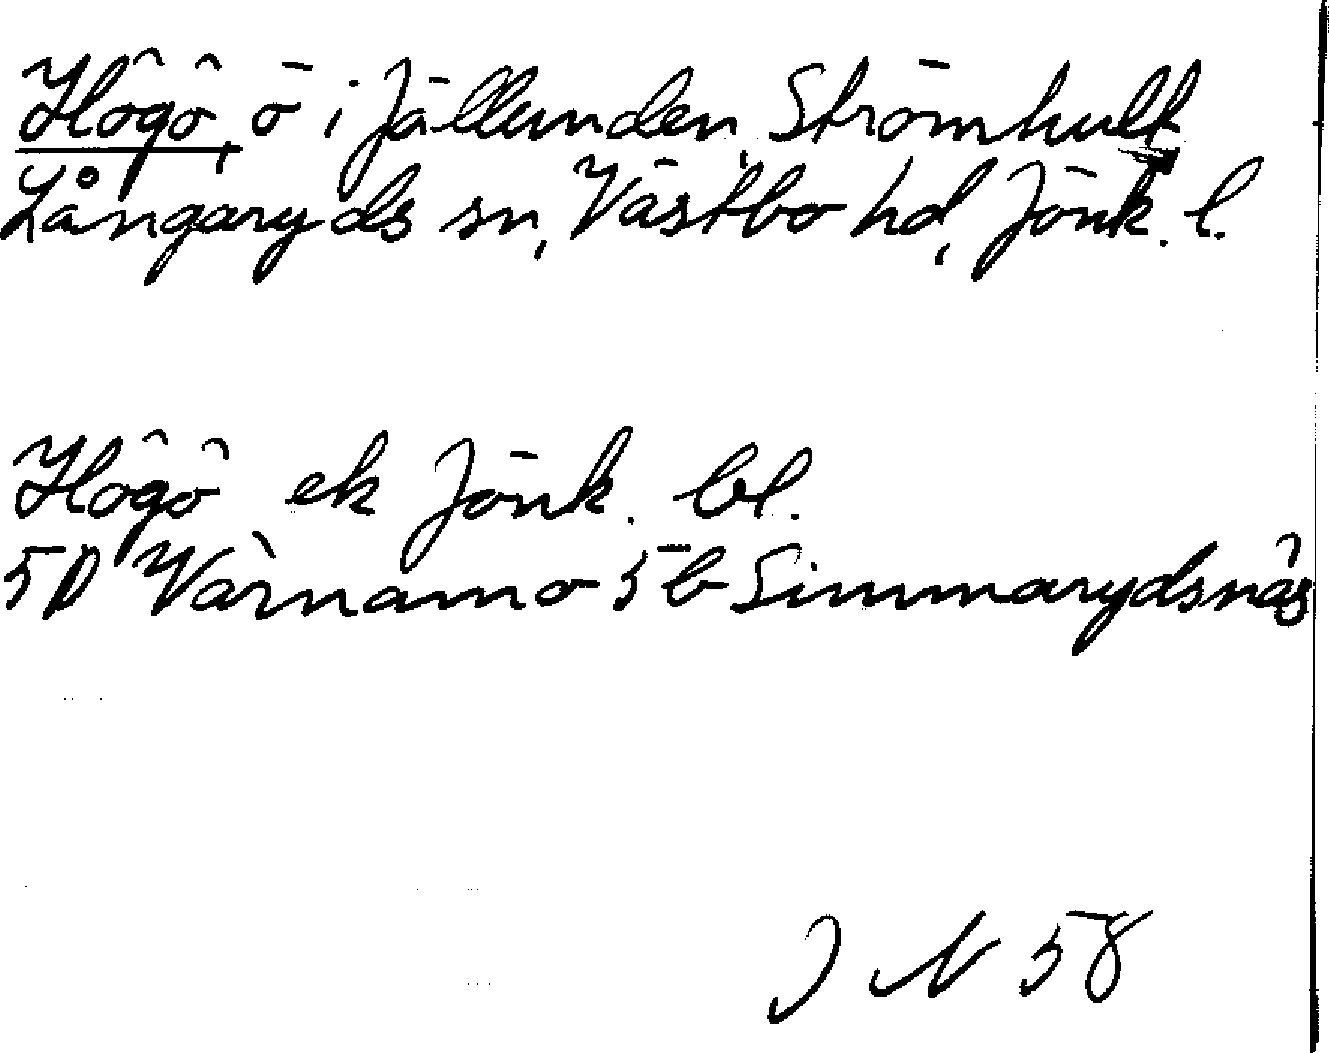 Högö, ö i Jällunden, Strömhult
Långaryds sn, Västbo hd, Jönk. l.
Högö ek Jönk. bl.
5D Värnamo 5b Simmarydsnäs
J N 58